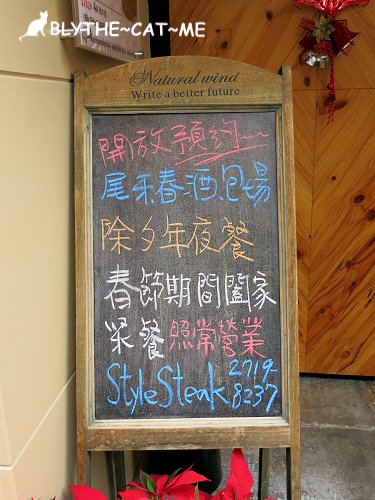 BLYTHE~CAT~ME
Natural wind
Write a better future
開放預約
尾牙春酒、包場
除夕年夜餐
春節期間闔家
聚餐 照常營業
Style Steak 2719-
8237